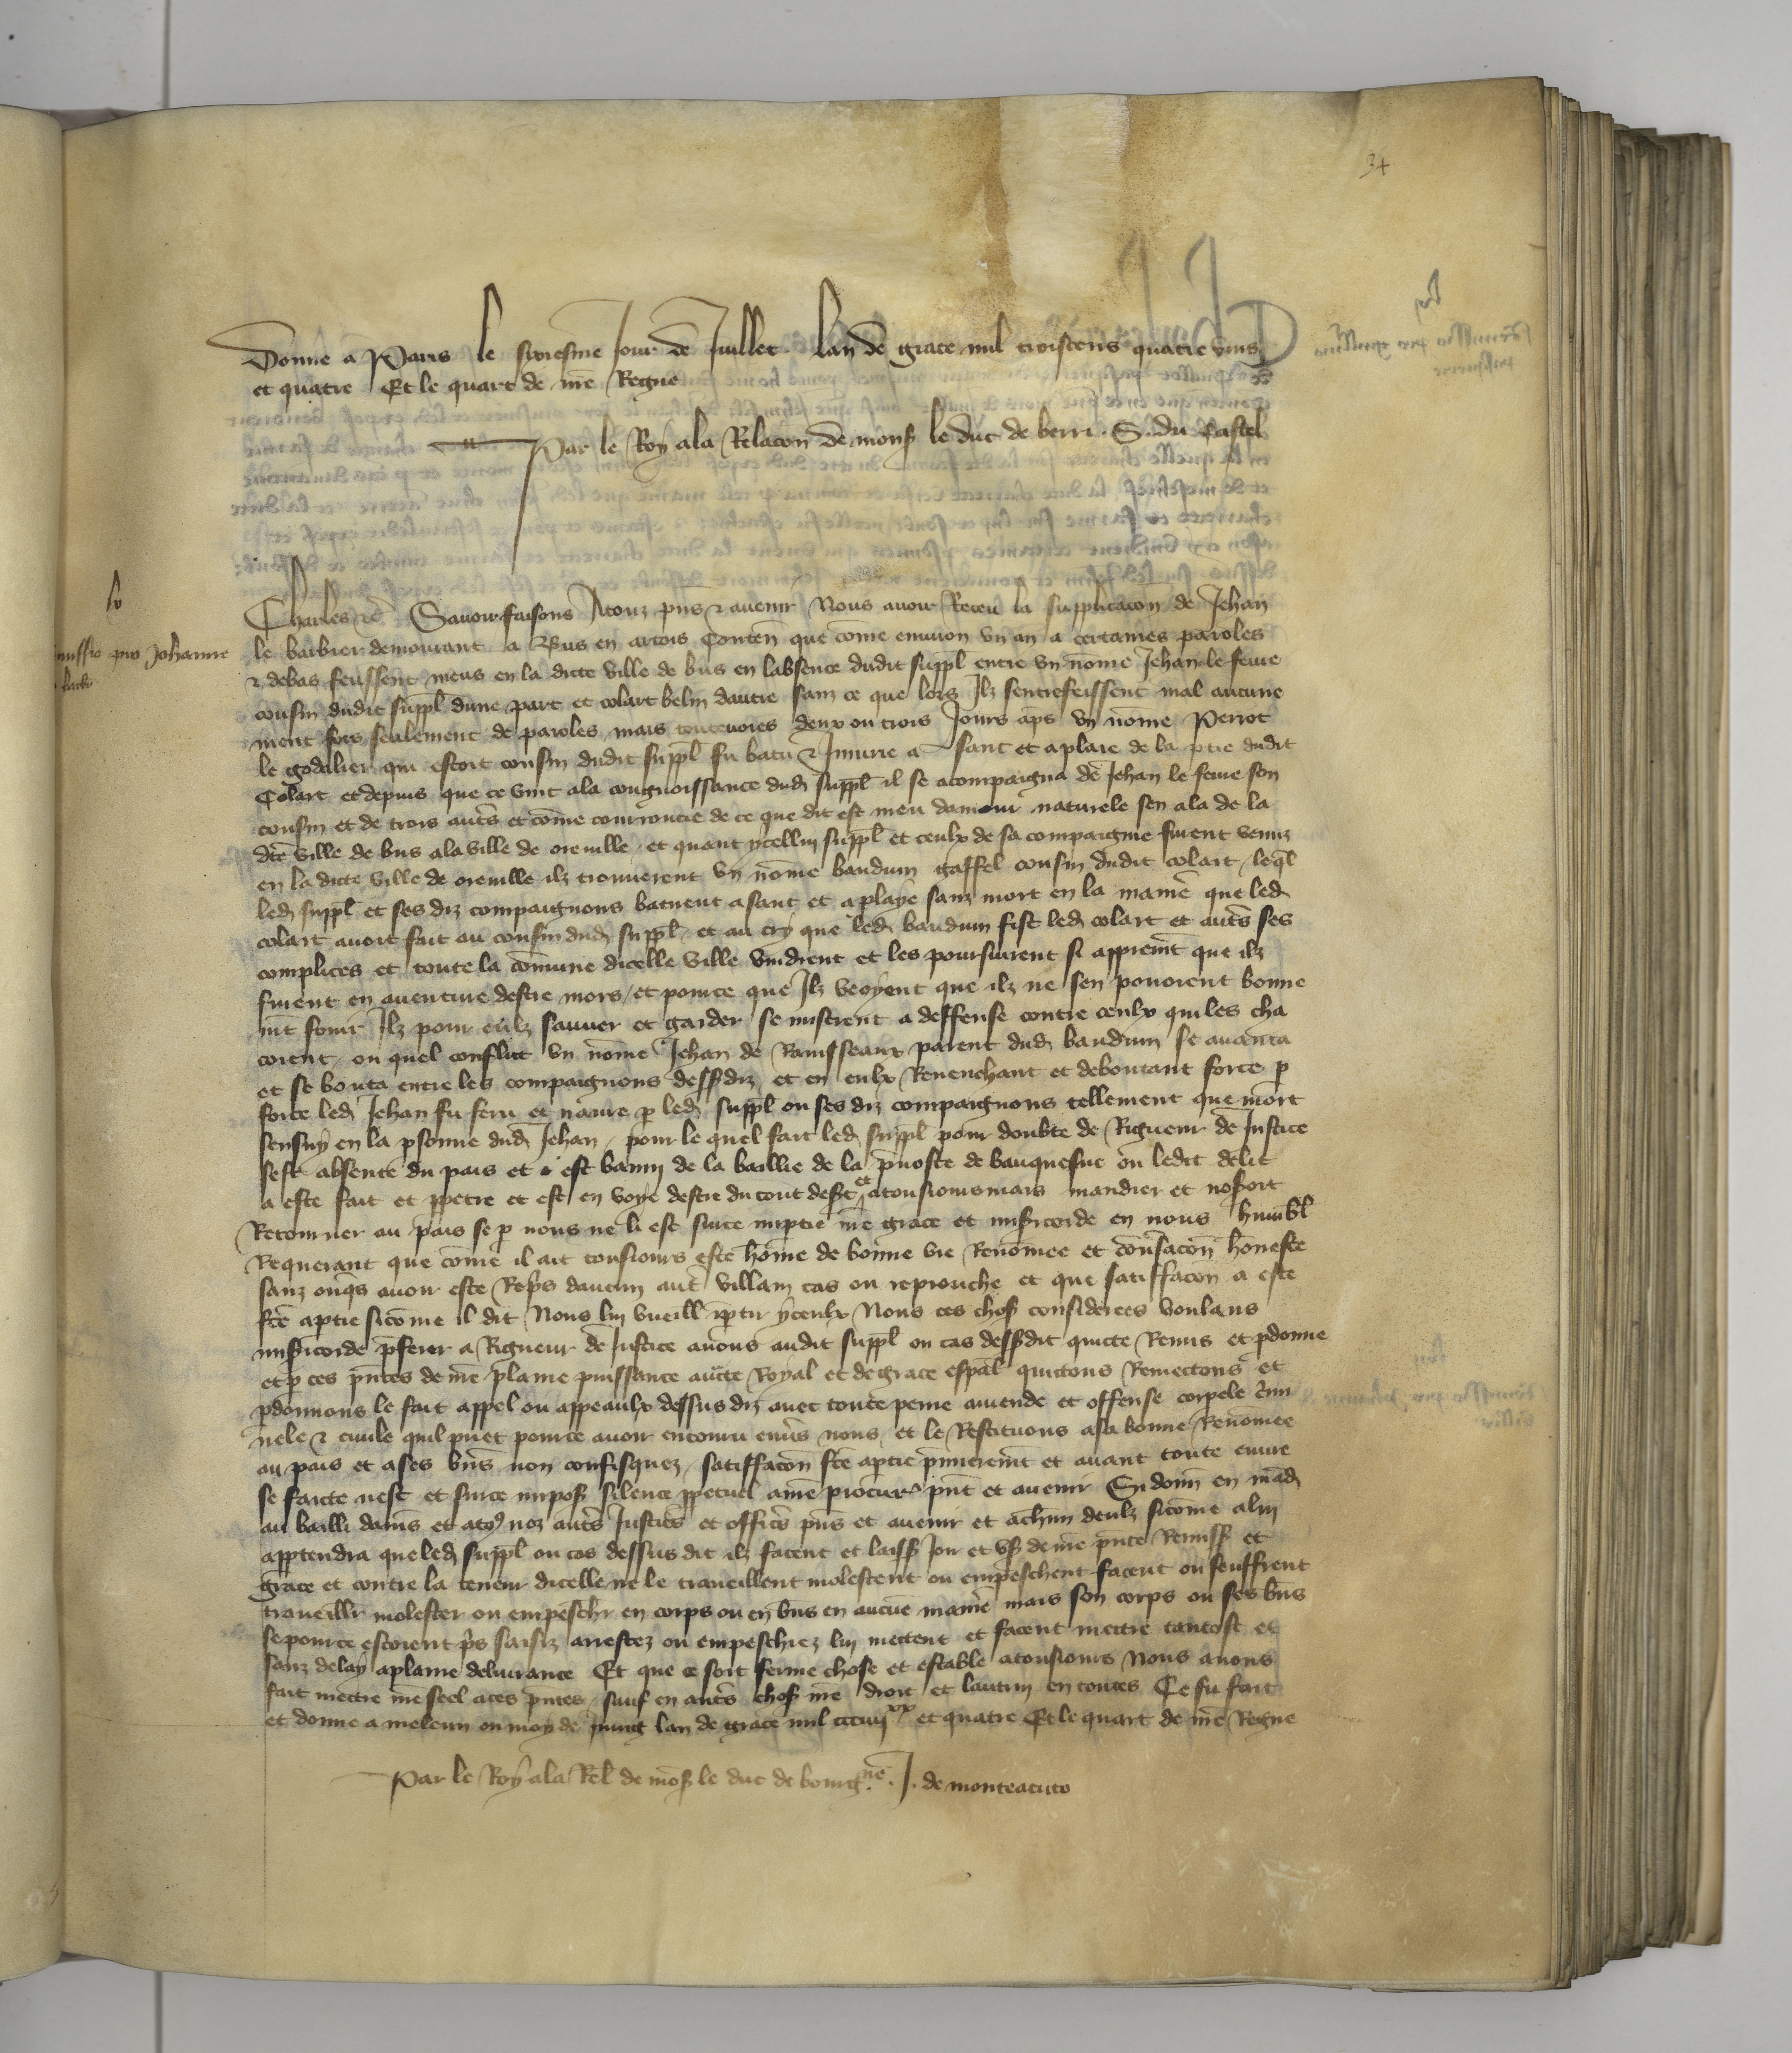 34
Donne a Paris le sixiesme Jour de Juillet lan de grace mil troiscens quatre vins
et quatre Et le quart de nr̃e Regne
Par le Roy a la Relacon de mons̃ le duc de berri . S. du Castel
lv
missio pro Johanne
barb
Charles ⁊c̃ Savoir faisons A touz pñs ⁊ avenir Nous avoir Receu la supplicacõn de Jehan
le barbier demourant a Bus en artois Conteñ que cõme environ vn an a certaines paroles
⁊ debas feussent meus en la dicte ville de bus en labsence dudit suppl̃ entre vn nõme Jehan le feure
cousin dudit suppl̃ dune part et colart belin dautre sanz ce que lors Ilz sentrefeissent mal aucune
ment fors seulement de paroles mais toutevoies deux ou trois Jours ap̃s vn nõme Perrot
le godalier qui estoit cousin dudit suppl̃ fu batu ⁊ Iniurie a sanc et a plaie de la ptie dudit
Colart et depuis que ce vint a la congnoissance dud̃ suppl̃ il se acompaigna de Jehan le feure son
cousin et de trois aut̃s et cõme courroucie de ce que dit est meu damour naturele sen ala de la
dc̃e ville de bus a la ville de oreville et quant ycellui suppl̃ et ceulx de sa compaignie furent venuz
en la dicte ville de oreville ilz trouverent vn nõme bauduin gaffel cousin dudit colart leql̃
led̃ suppl̃ et ses diz compaignons batirent a sanc et a playe sanz mort en la manie͂ que led̃
colart avoit fait au cousin dud̃ suppl̃ et au cry que led̃ bauduin fist led̃ colart et aut̃s ses
complices et toute la cõmune dicelle ville vindrent et les poursuirent si appremt̃ que ilz
furent en aventure destre mors et pource que Ilz veoyent que ilz ne sen pouoient bonne
mt̃ fouir Ilz pour eulz sauver et garder se mistrent a deffense contre ceulx qui les cha
coient ou quel conflict vn nõme Jehan de Ransseaux parent dud̃ bauduin se avanca
et se bouta entre les compaignons dessusdiz et en eulx Revenchant et deboutant force p
force led̃ Jehan fu feru et navre p led̃ suppl̃ ou ses diz compaignons tellement que mort
sensuy en la psonne dud̃ Jehan pour le quel fait led̃ suppl̃ pour doubte de Rigueur de Justice
sest absente du pais et est banny de la baillie de la pvoste de bauquesne ou ledit delit
a este fait et ppetre et est en voye destre du tout dess̃t et a tousiours mais mandier et noseroit
Retourner au pais se p nous ne li est surce impartie nr̃e grace et misicorde en nous humbl̃
Requerant que cõme il ait tousiours este hõme de bonne vie Renõmee et convsacõn honeste
sanz onq̃s avoir este Rep̃s daucun aut̃ villain cas ou reprouche et que satisfacõn a este
fc̃e a ptie sicõme il dit Nous lui vueill̃ imptir yceulx Nous ces chos̃ considerees voulans
misicorde pferer a Rigueur de Justice avons audit suppl̃ ou cas dessusdit quicte Remis et pdonne
et p ces pñtes de nr̃e plaine puissance auc̃te Royal et de grace espal̃ quictons Remectons et
pdonnons le fait appel ou appeaulx dessus diz avec toute peine amende et offense corpele c̃mi
nele ⁊ civile quil puet pource avoir encouru envs̃ nous et le Restituons a sa bonne Renõmee
au pais et a ses bñs non confisquez satisfacõn fc̃e a ptie pmierem̃t et avant toute euure
se faicte nest et surce impos̃ silence ppetuel a nr̃e procur̃ pñt et avenir Si donñ en mãd̃
au bailli damiens et a to⁹ noz aut̃s Justiciers et offic̃s pñs et avenir et a ch̃un deulz sicõme a lui
apptendra que led̃ suppl̃ ou cas dessus dit ilz facent et laiss̃ Joir et us̃ de nr̃e pñte Remiss̃ et
grace et contre la teneur dicelle ne le traveillent molestent ou empeschent facent ou seuffrent
traveillr̃ molester ou empeschr̃ en corps ou en bñs en aucũe manie͂ mais son corps ou ses bñs
se pource estoient p̃s saisiz arrestez ou empeschiez lui mettent et facent mettre tantost et
sanz delay a plaine delivrance Et que ce soit ferme chose et estable a tousiours Nous avons
fait mettre nr̃e seel a ces pñtes sauf en aut̃s chos̃ nr̃e droit et lautrui en toutes Ce fu fait
et donne a meleun ou moys de juing lan de grace mil ccciiij xx et quatre Et le quart de nr̃e Regne
Par le Roy a la Rel̃ de mons̃ le duc de bourgne . J. de monteacuto